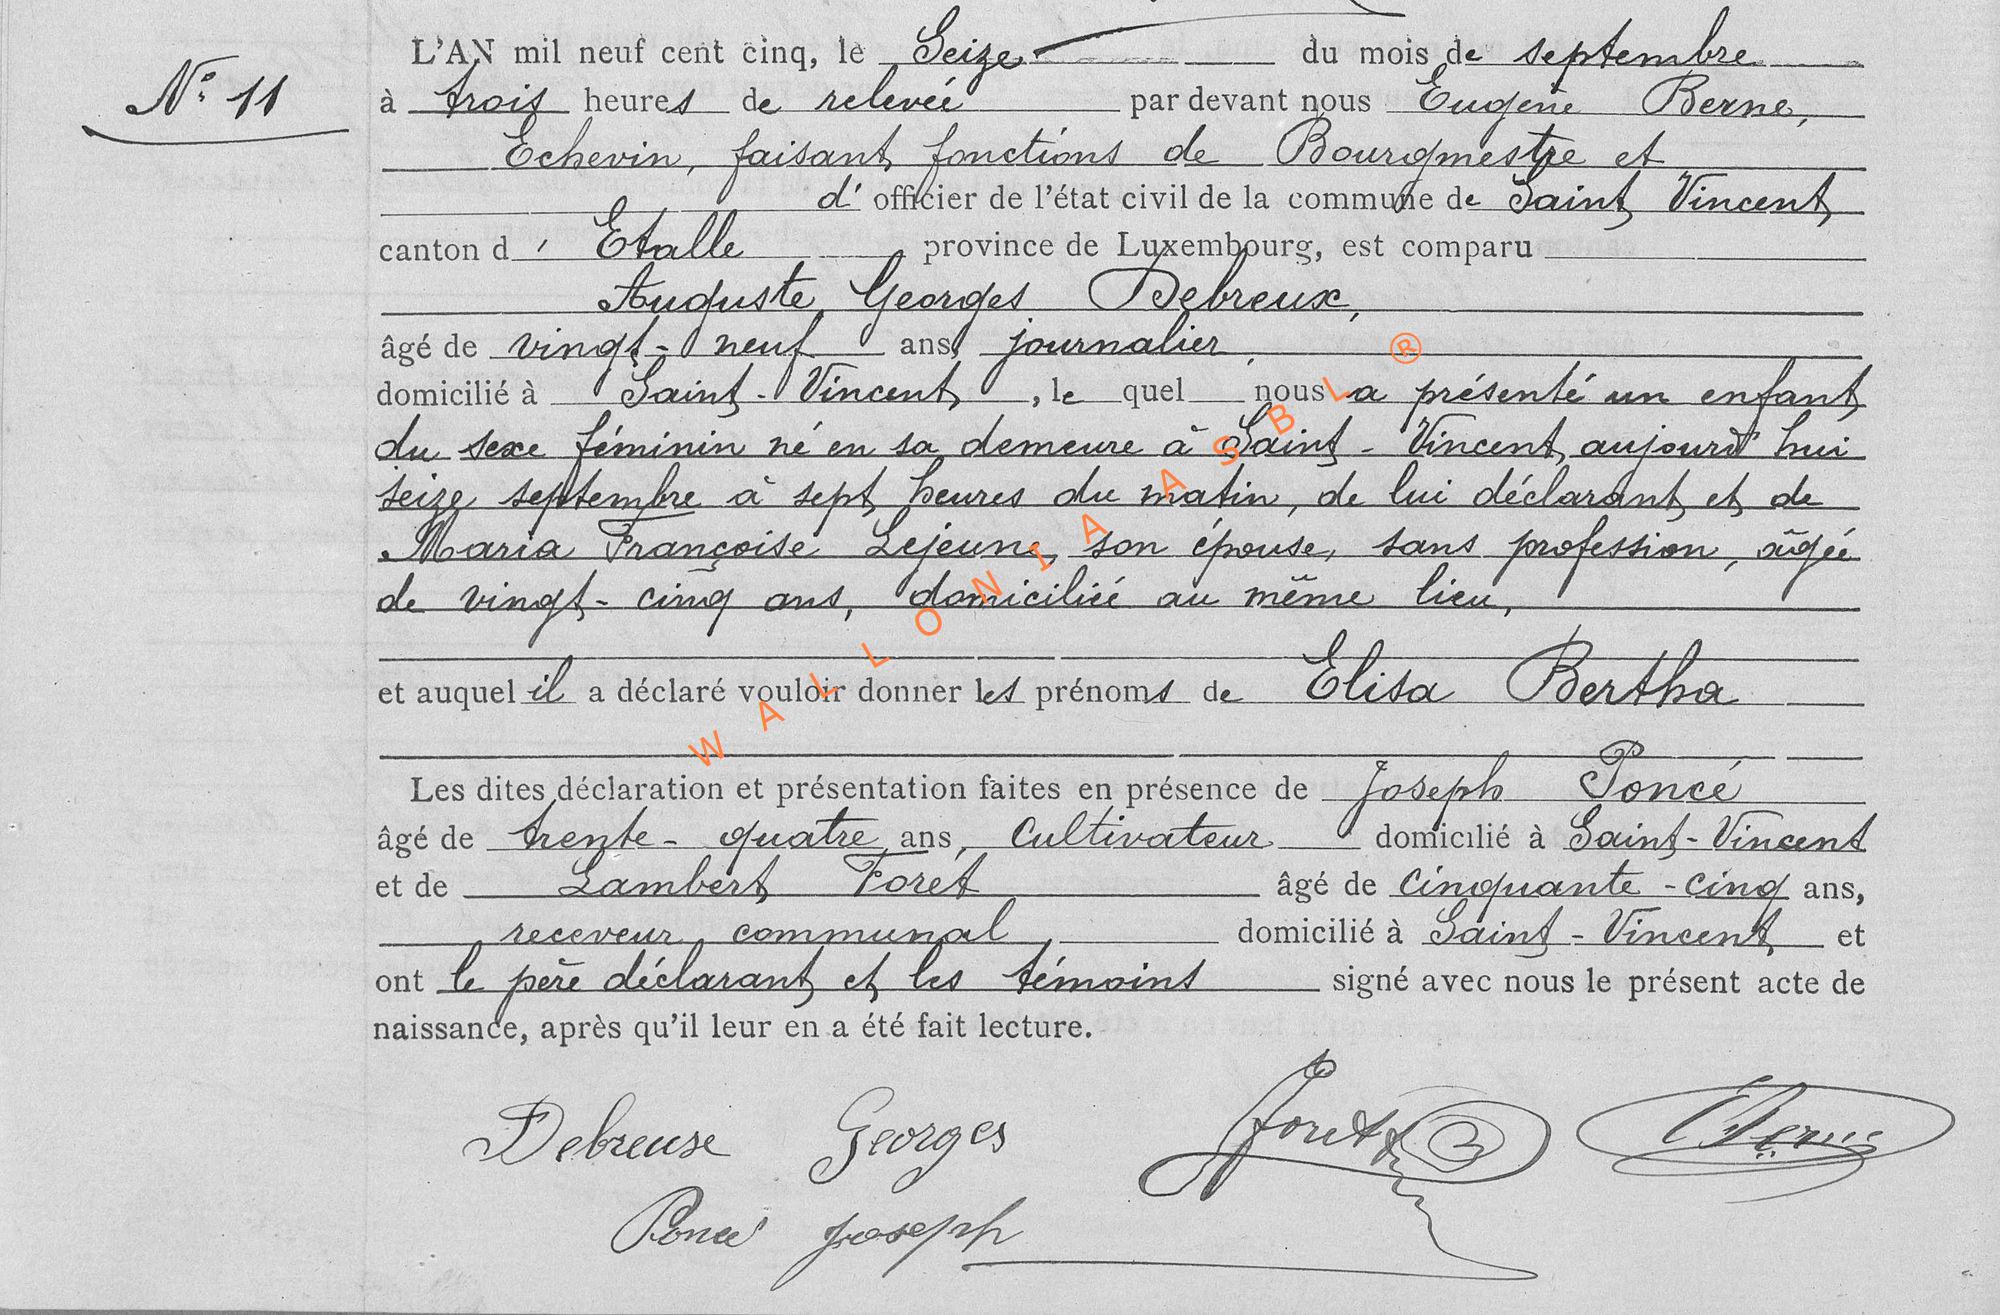 N° 11
L'AN mil neuf cent cinq, le Seize du mois de septembre
à trois heures de relevée par devant nous Eugène Berne,
Echevin, faisant fonctions de Bourgmestre et
d' officier de l'état civil de la commune de Saint Vincent
canton d' Etalle province de Luxembourg, est comparu
Auguste Georges Debreux,
âgé de vingt-neuf ans, journalier,
domicilié à Saint-Vincent, le quel nous a présenté un enfant
du sexe féminin né en sa demeure à Saint-Vincent aujourd'hui
seize septembre à sept heures du matin, de lui déclarant et de
Maria Françoise Lejeune, son épouse, sans profession, âgée
de vingt-cinq ans, domiciliée au même lieu,
et auquel il a déclaré vouloir donner les prénoms de Elisa Bertha
Les dites déclaration et présentation faites en présence de Joseph Poncé
âgé de trente-quatre ans, cultivateur domicilié à Saint-Vincent
et de Lambert Foret âgé de cinquante-cinq ans,
receveur communal domicilié à Saint-Vincent et
ont le père déclarant et les témoins signé avec nous le présent acte de
naissance, après qu'il leur en a été fait lecture.
Debreux Georges Foret EBerne
Poncé Joseph
WALLONIA ASBL ®